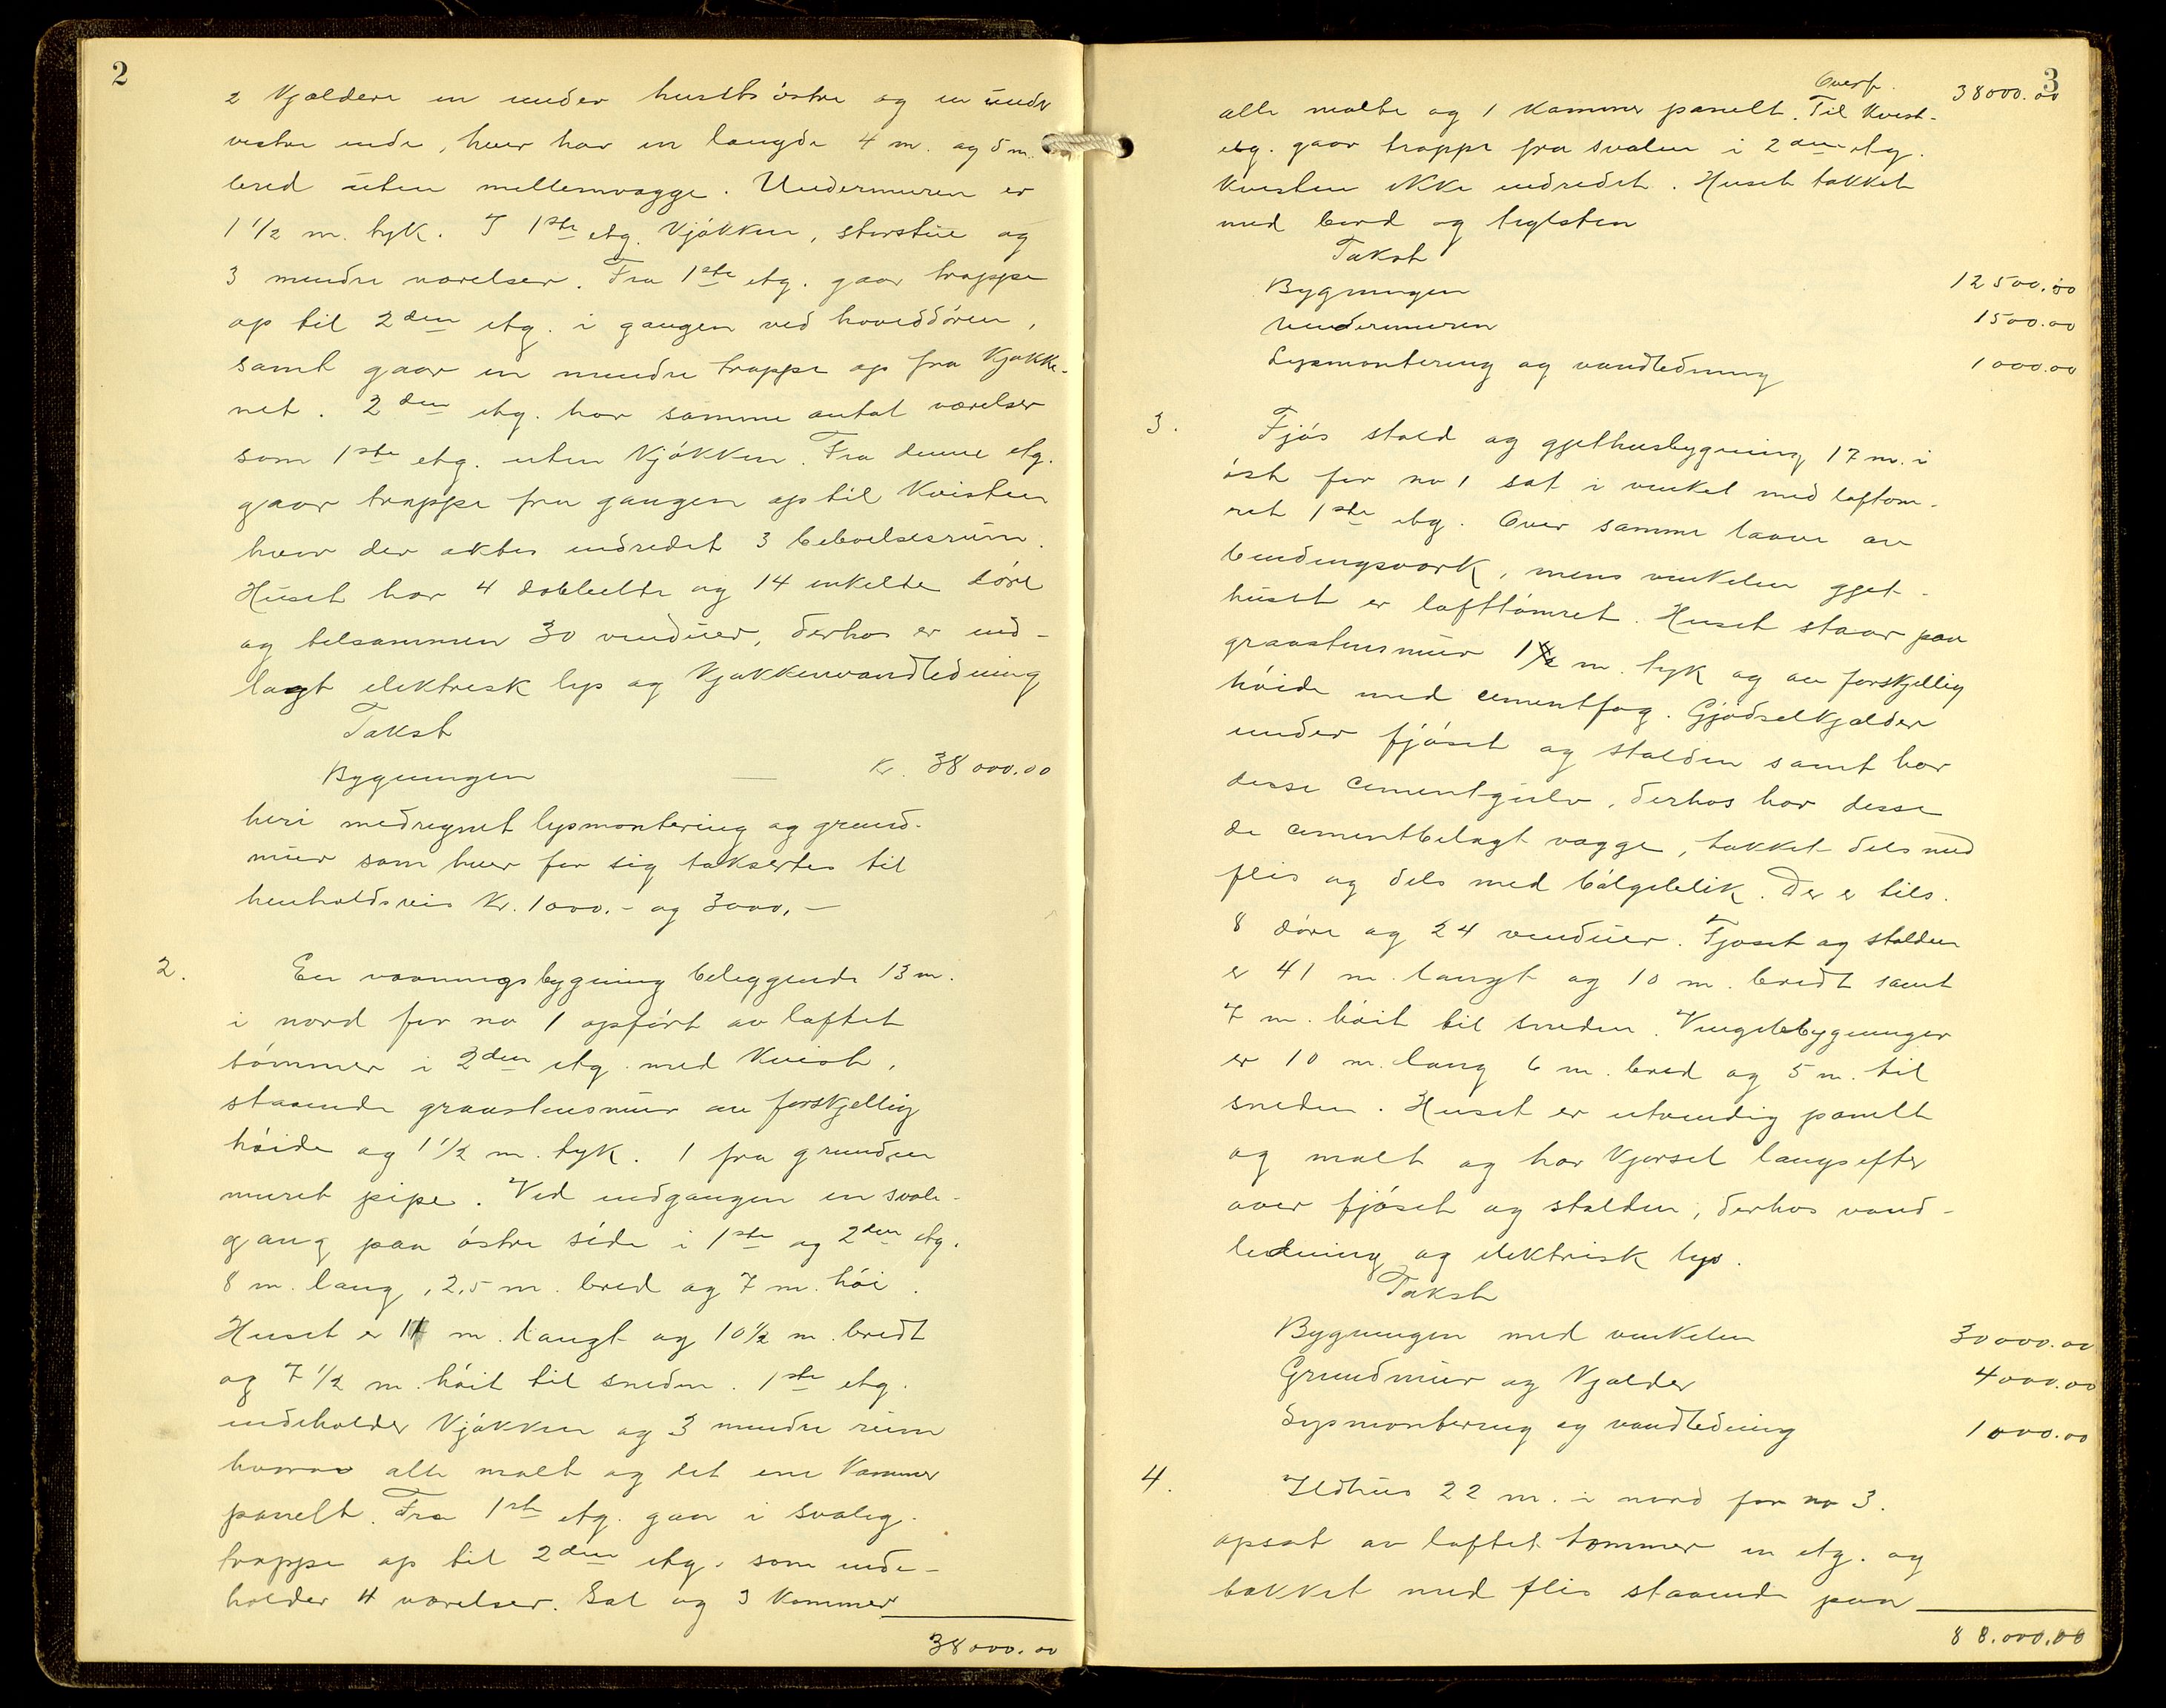 2
2 Kjældere en under husets østre og en under
vestre ende, hver har en længde 4 m. og 5 m.
bred uten mellemvægge. Undermuren er
1 1/2 m. tyk. I 1ste etg. Kjøkken, storstue og
3 mindre værelser. Fra 1ste etg. gaar trappe
op til 2den etg. i gangen ved hoveddøren,
samt gaar en mindre trappe op fra Kjøkke-
net. 2den etg. har samme antal værelser
som 1ste etg. uten Kjøkken. Fra denne etg.
gaar trappe fra gangen op til Kvisten
hvor der aktes indredet 3 beboelsesrum.
Huset har 4 dobbelte og 14 enkelte døre
og tilsammen 30 vinduer, derhos er ind-
lagt elektrisk lys og Kjøkkenvandledning
Takst
Bygningen — Kr. 38000.00
heri medregnet lysmontering og grund-
mur som hver for sig taksertes til
henholdsvis Kr. 1000.- og 3000.-
2. En vaaningsbygning beliggende 13 m.
i nord for no 1 opført av laftet
tømmer i 2den etg. med Kvist,
staaende graastensmur av forskjellig
høide og 1 1/2 m. tyk. 1 fra grunden
muret pipe. Ved indgangen en svale-
gang paa østre side i 1ste og 2den etg.
8 m. lang, 2,5 m. bred og 7 m. høi.
Huset er m. langt og 10 1/2 m. bredt
og 7 1/2 m. høit til sneden. 1ste etg.
indeholder Kjøkken og 3 mindre rum
hvorav alle malt og det ene Kammer
panelt. Fra 1ste etg. gaar i svaleg.
trappe op til 2den etg. som inde-
holder 4 værelser. Sal og 3 Kammer
38000.00
3
Overf. 38000.00
alle malte og 1 Kammer panelt. Til Kvist-
etg. gaar trappe fra svalen i 2den etg.
Kvisten ikke indredet. Huset takket
med bord og teglsten
Takst
Bygningen 12500.00
Undermuren 1500.00
Lysmontering og vandledning 1000.00
3. Fjøs stald og gjethusbygning 17 m. i
øst for no 1 sat i vinkel med laftøm-
ret 1ste etg. Over samme laave av
bindingsverk, mens vinkelen gjet-
huset er lafttømret. Huset staar paa
graastensmur 1 1/2 m. tyk og av forskjellig
høide med cementfog. Gjødselkjælder
under fjøset og stalden samt har
disse cementgulv, derhos har disse
de cementbelagt vægge, takket dels med
flis og dels med bølgeblik. Der er tils.
8 døre og 24 vinduer. Fjøset og stalden
er 41 m. langt og 10 m. bredt samt
7 m. høit til sneden. Vingebbygningen
er 10 m. lang 6 m. bred og 5 m. til
sneden. Huset er utvendig panelt
og malt og har Kjørsel langsefter
over fjøset og stalden, derhos vand-
ledning og elektrisk lys.
Takst
Bygningen med vinkelen 30000.00
Grundmur og Kjælder 4000.00
Lysmontering og vandledning 1000.00
4. Ildhus 22 m. i nord for no 3.
opsat av laftet tømmer en etg. og
takket med flis staaende paa
88.000.00